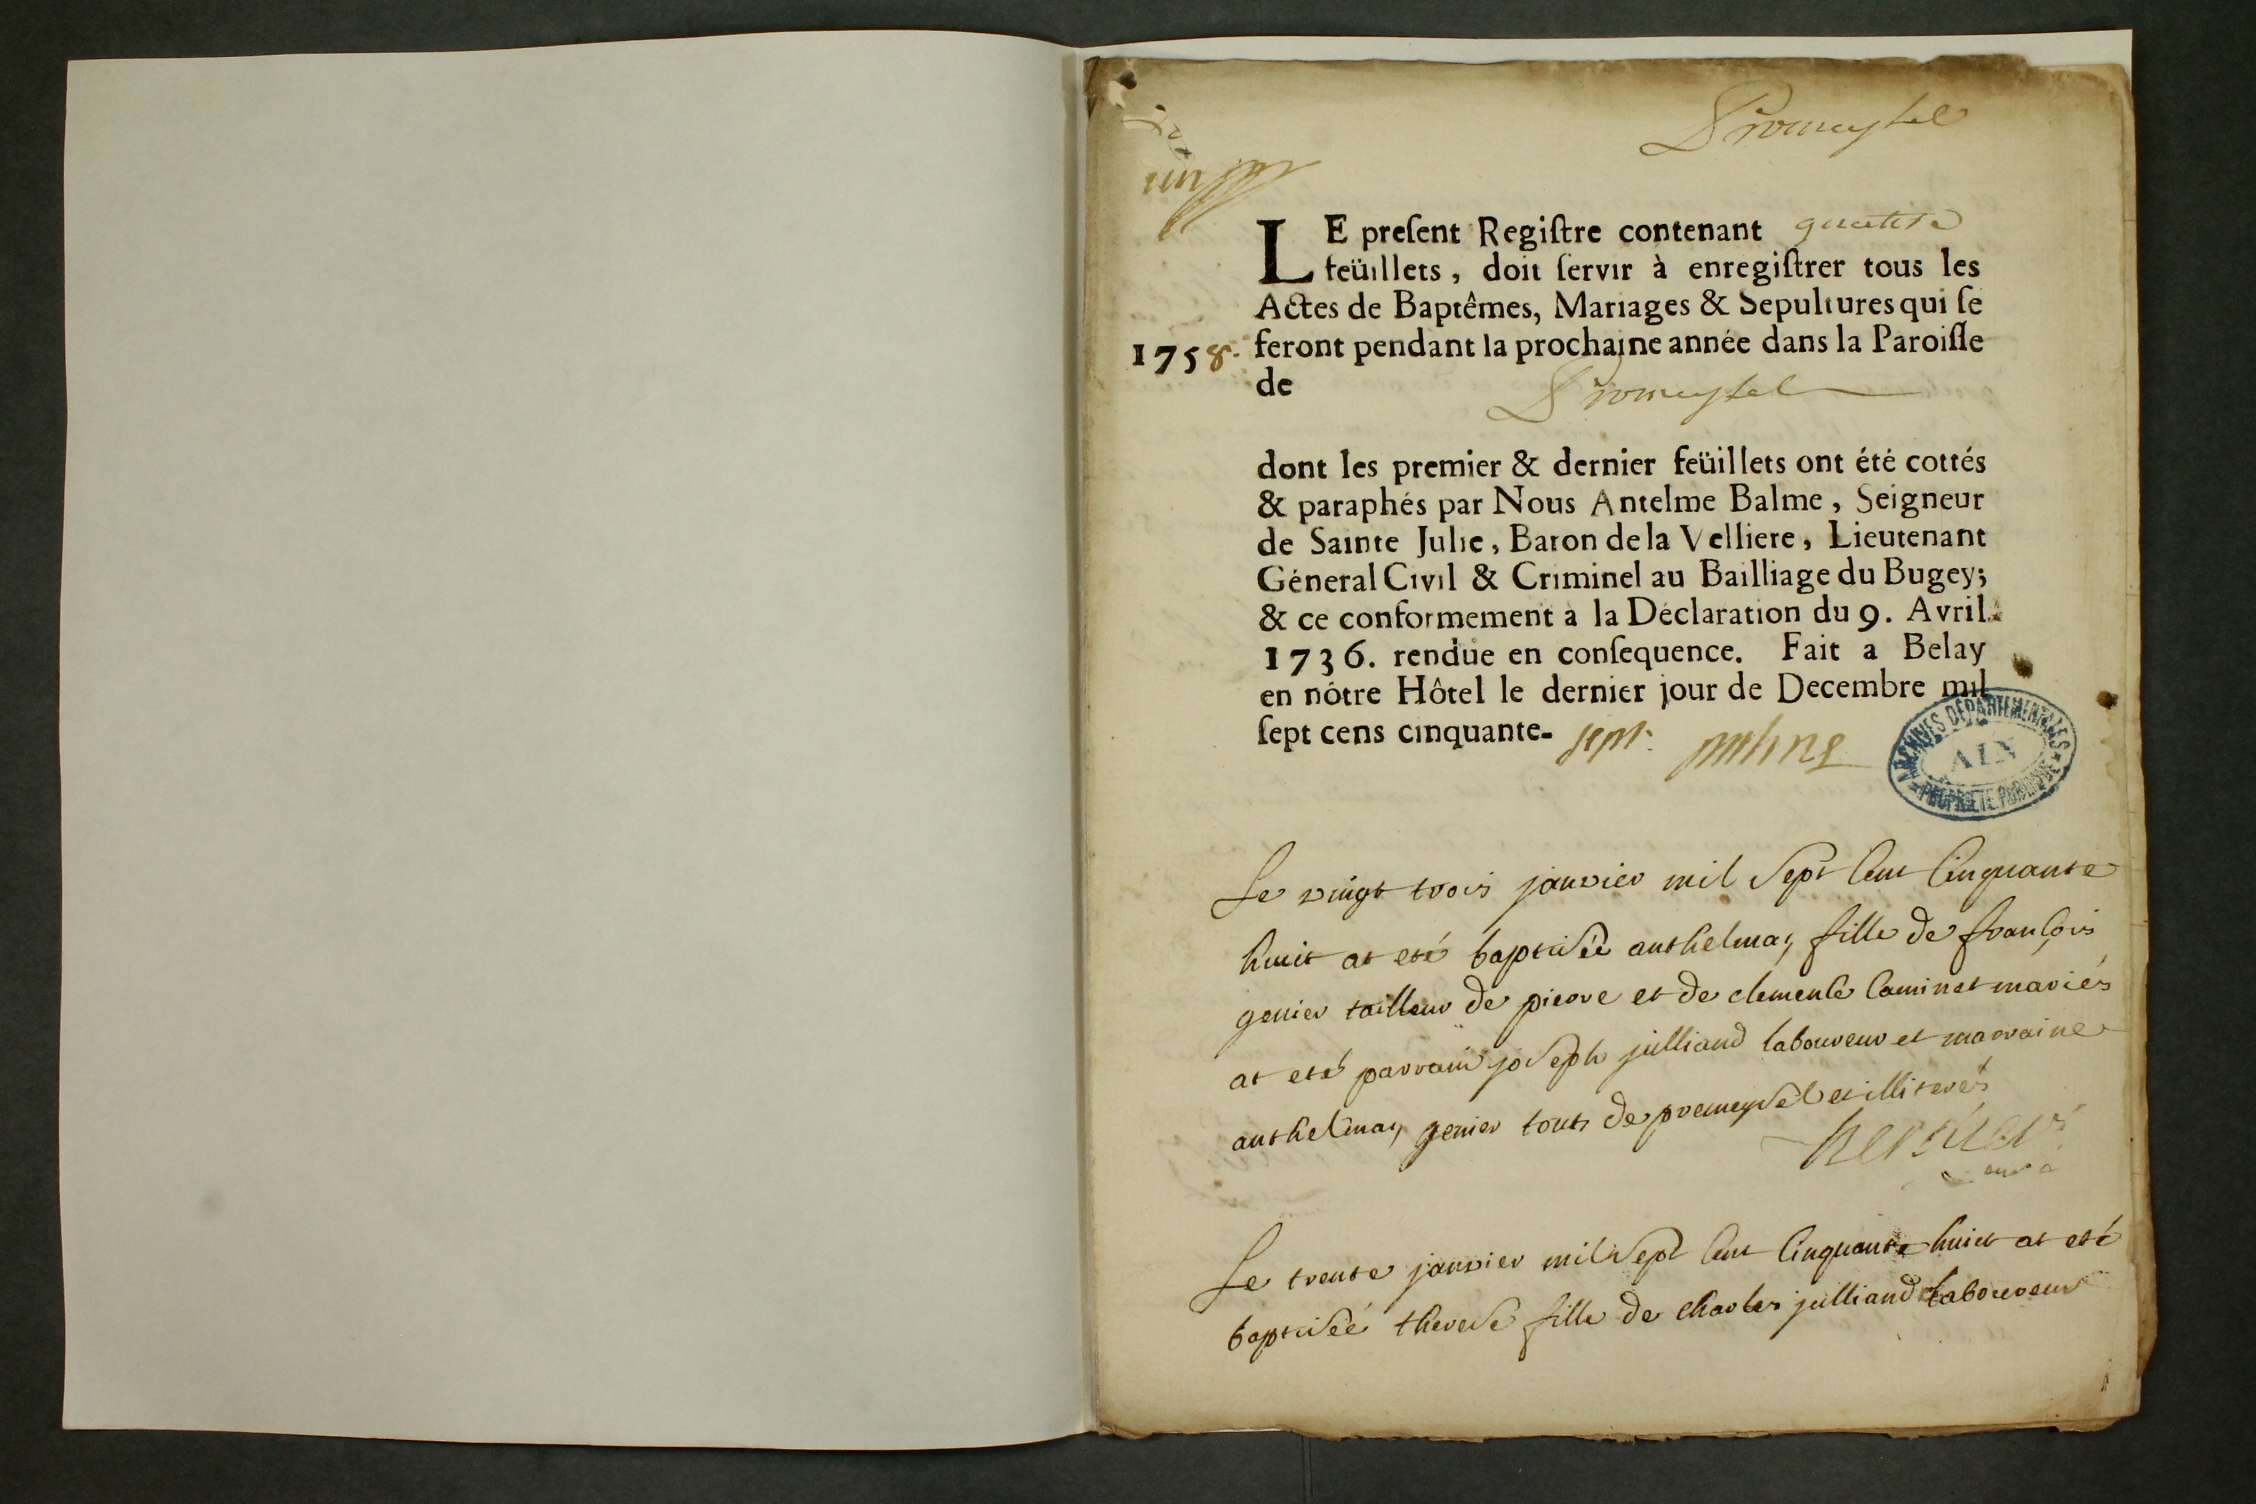 Promeysel
un
LE preſent Regiſtre contenant quatre
feüillets, doit ſervir à enregiſtrer tous les
Actes de Baptêmes, Mariages & Sepultures qui ſe
1758. feront pendant la prochaine année dans la Paroiſſe
de Promeysel
dont les premier & dernier feüillets ont été cottés
& paraphés par Nous Antelme Balme, Seigneur
de Sainte Julie, Baron de la Velliere, Lieutenant
Géneral Civil & Criminel au Bailliage du Bugey;
& ce conformement à la Déclaration du 9. Avril
1736. rendüe en conſequence. Fait a Belay
en nôtre Hôtel le dernier jour de Decembre mil
ſept cens cinquante- sept.
ARCHIVES DÉPARTEMENTALES
AIN
PROPRIÉTÉ PUBLIQUE
Le vingt trois janvier mil sept cent cinquante
huit at eté baptisée anthelmaz fille de françois
genier tailleur de pierre et de clemence caminet mariés
at eté parrain joseph julliand laboureur et marraine
anthelmaz genier touts de premeysel et illiterés
curé
Le trente janvier mil sept cent cinquante huict at eté
baptisée therese fille de charles julliand laboureur